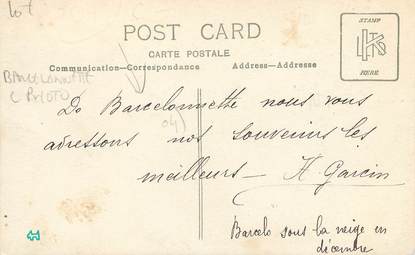 lot
POST CARD
CARTE POSTALE
Communication—Correspondance
Address—Addresse
STAMP
HERE
BARCELONNETTE
C PHOTO
De Barcelonnette nous vous
04)
adressons nos souvenirs les
meilleurs — A. Garcin
Barcelo sous la neige en
décembre